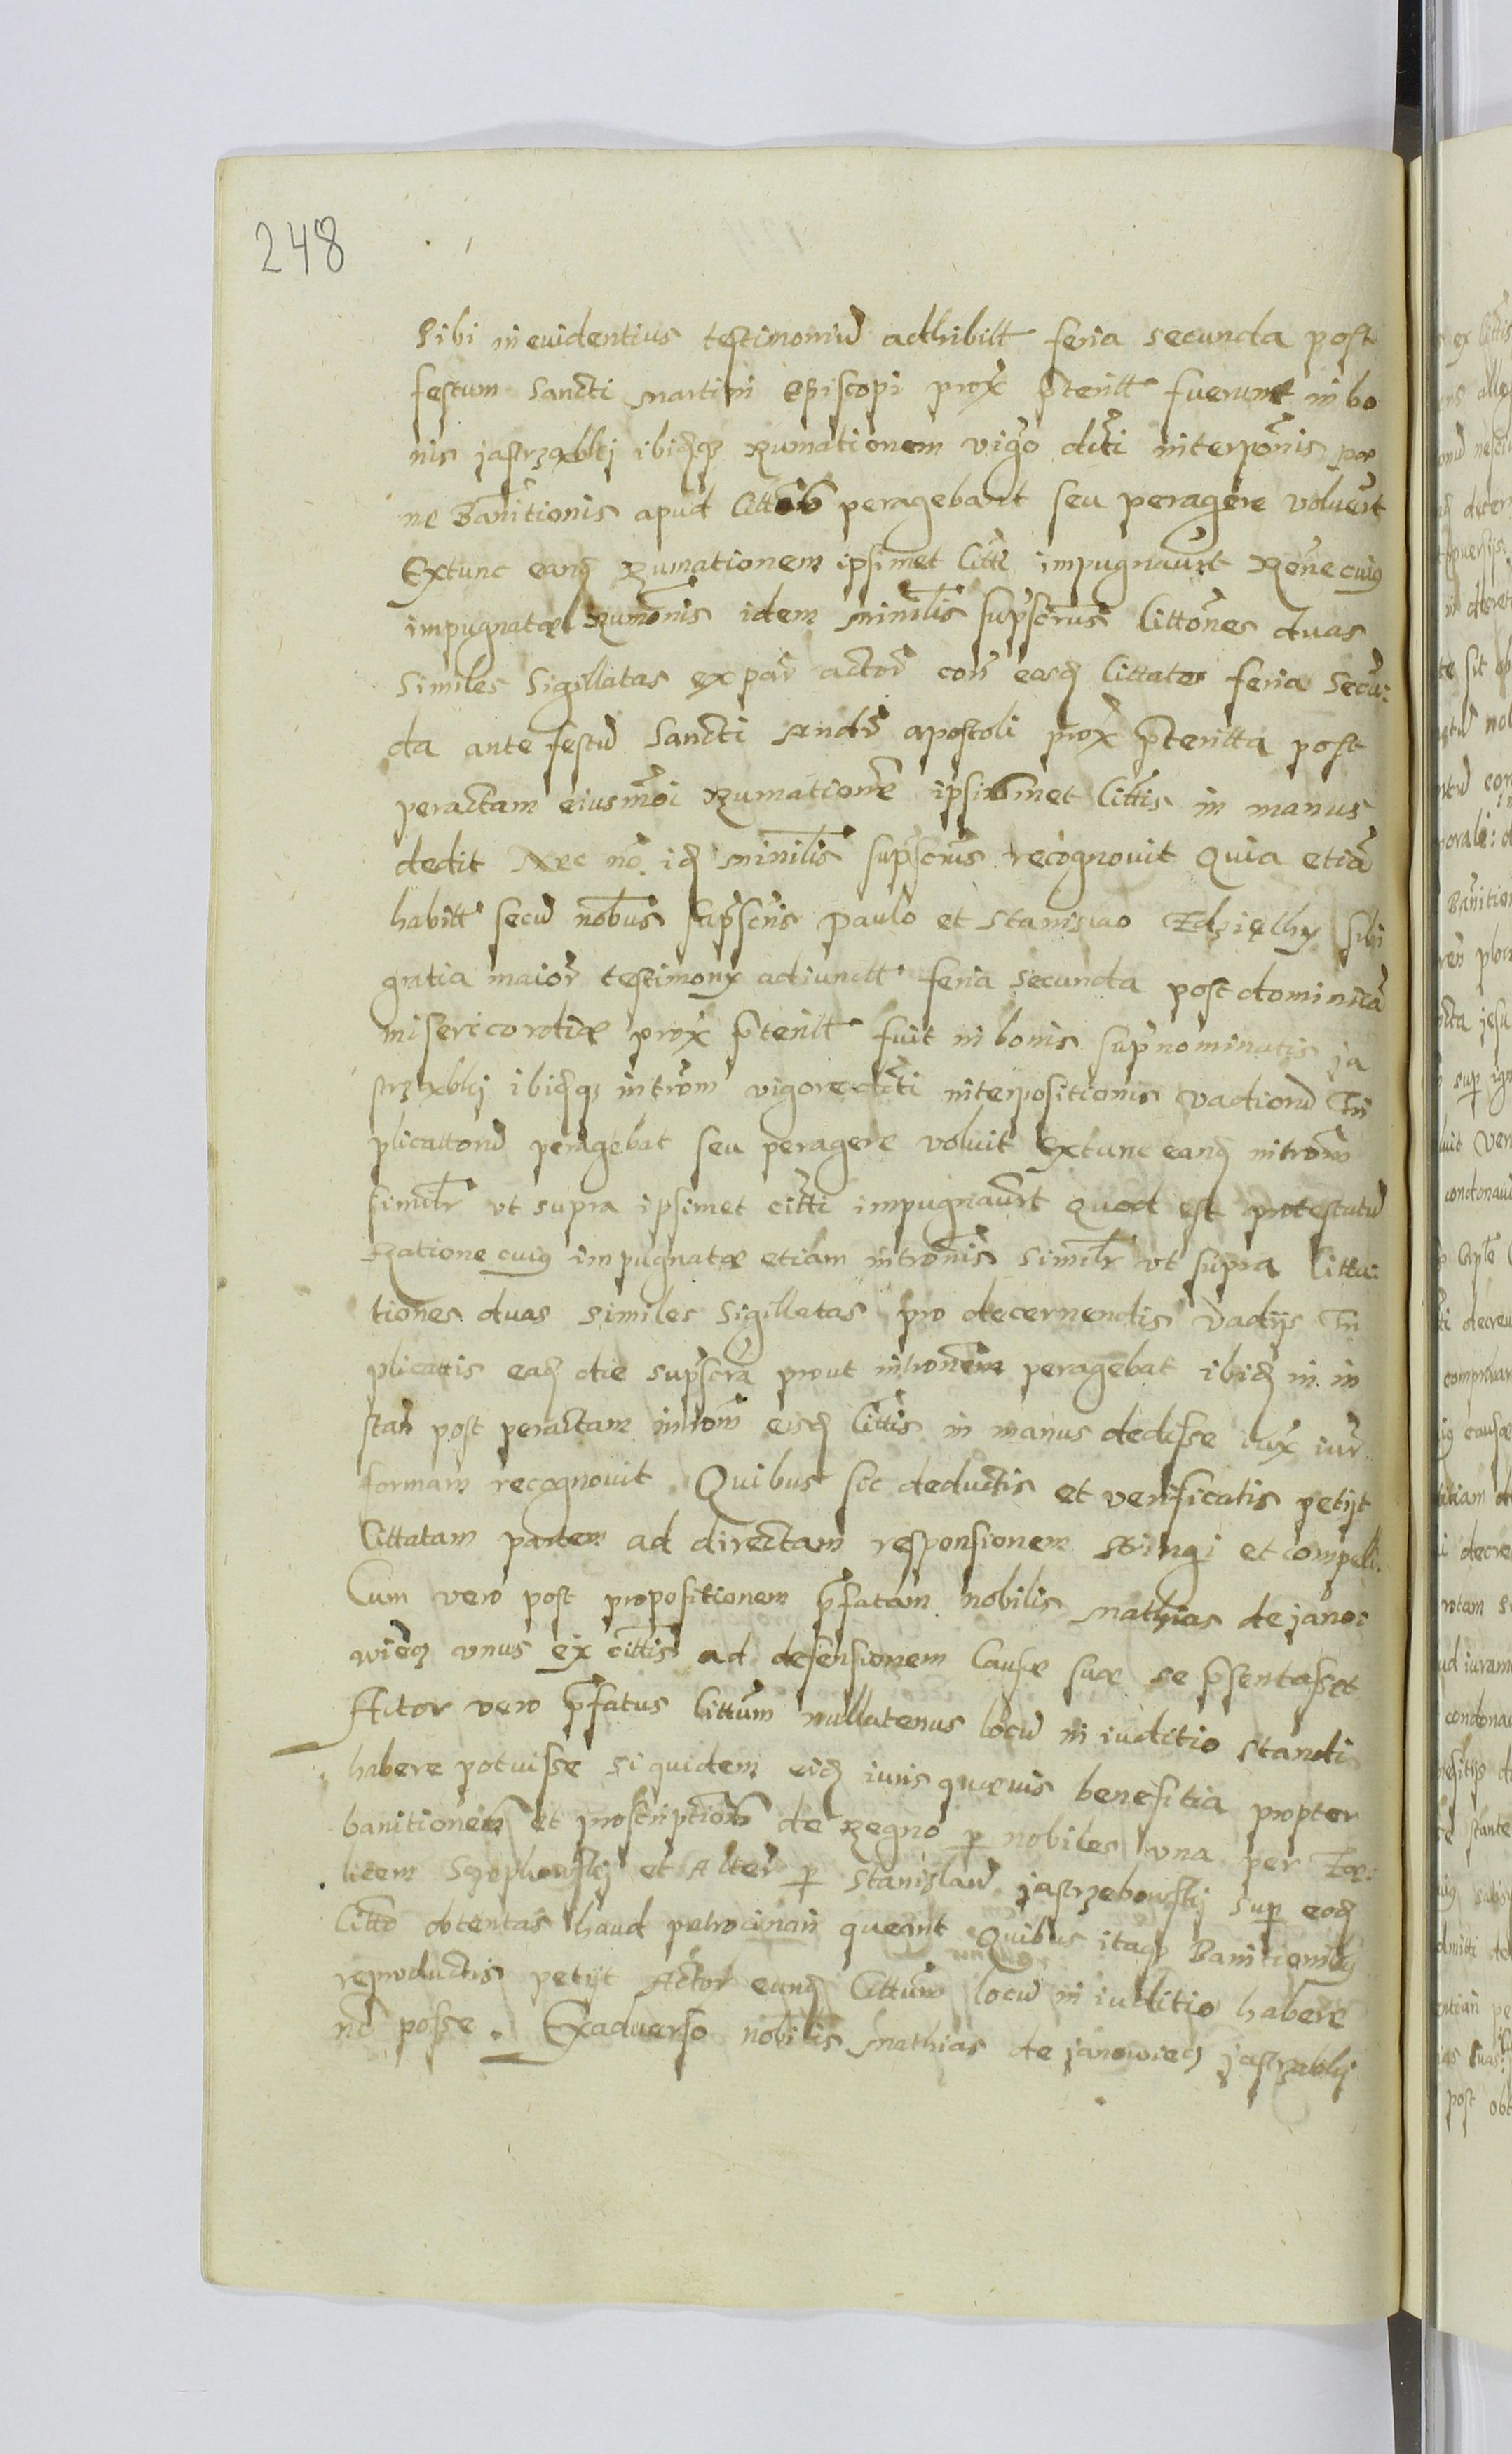 248
Sibi in euidentius testimoniũ adhibitt feria secunda post
festum Sancti Martini Episcopi prox̃ p̃teritt fuerunt in bo
nis jastrząbkj ibidq3 Rumationem vigõ dc̃ti interpõnis pœ
næ Banitionis apud Citt peragebant seu peragere voluer̃t
Extunc eand Rumationem ipsimet Citti impugnauer̃t Rõne cuiq
impugnatæ Rumõnis idem Minilis supscrus̃ Cittõnes duas
Similes Sigillatas ex par̃ actor̃ coñ easd Cittatos feria Secu:
da ante festũ Sancti Andr̃ apostoli prox̃ p̃teritta post
peractam eiusmõi Rumationẽ ipsismet Cittis in manus
dedit Nec nõ id Minilis̃ supscrus̃ recognouit Quia etiã
habitt secũ nobus̃ supscris̃ Paulo et Stanislao Zdzięthy sibi
gratia maior̃ testimony adiunctt feria secunda post dominicã
misericordiæ prox̃ p̃teritt fuit in bonis sup̃nominatis ja
strząbkj ibidq3 introm̃ vigore dc̃ti interpositionis vadiorũ Tri
plicattorũ peragebat seu peragere voluit Extunc eand introm̃
similr̃ vt supra ipsimet citti impugnauer̃t Quod est protestatũ
Ratione cuiq impugnatæ etiam intromis̃ similr̃ vt supra Citta:
tiones duas similes Sigillatas pro decernendis vadijs Tri
plicattis ead die supscra prout intromẽm peragebat ibid in in
stañ post peractam introm̃ eisd Cittis in manus dedisse iux̃ iur̃
formam recognouit Quibus sic deductis et verificatis petijt
Cittatam partem ad directam responsionem stringi et compelli.
Cum vero post propositionem p̃fatam nobilis Mathias de jano:
wiecz vnus ex cittis ad defensionem Causæ suæ se p̃sentasset
Actor vero p̃fatus Cittum̃ nullatenus locũ in iuditio standi
habere potuisse siquidem eid iuris quæuis benefitia propter
banitionem et proscriptiõm de Regno p nobiles vna per Fœ:
licem Sczplowskj et Alter̃ p Stanislaũ jastrzębowskj sup eod
Citto obtentas haud patrocinari queant Quibus itaq3 Banitionibq
reproductis petijt Actor eund Cittum̃ locũ in iuditio habere
nõ posse. Exaduerso nobilis Mathias de janowiecz jastrząbkj